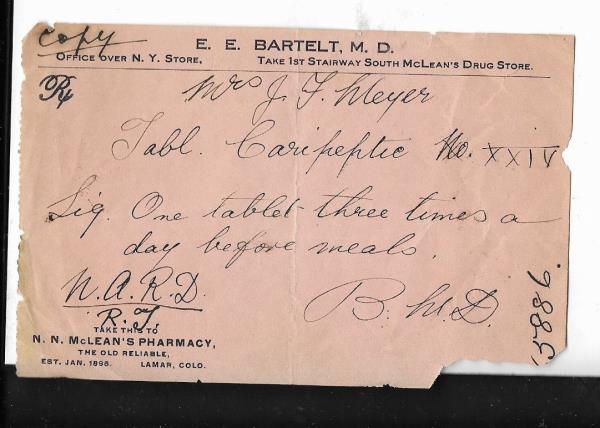 copy
E. E. BARTELT, M. D.
OFFICE OVER N. Y. STORE, TAKE 1ST STAIRWAY SOUTH MCLEAN'S DRUG STORE.
℞ Mrs J. F. Meyer
Tabl. Caripeptic No. XXIV
Sig. One tablet three times a
day before meals.
N.A.R.D. B. M.D.
R.T.
TAKE THIS TO
N. N. MCLEAN'S PHARMACY,
THE OLD RELIABLE,
EST. JAN. 1898. LAMAR, COLO.
5886.